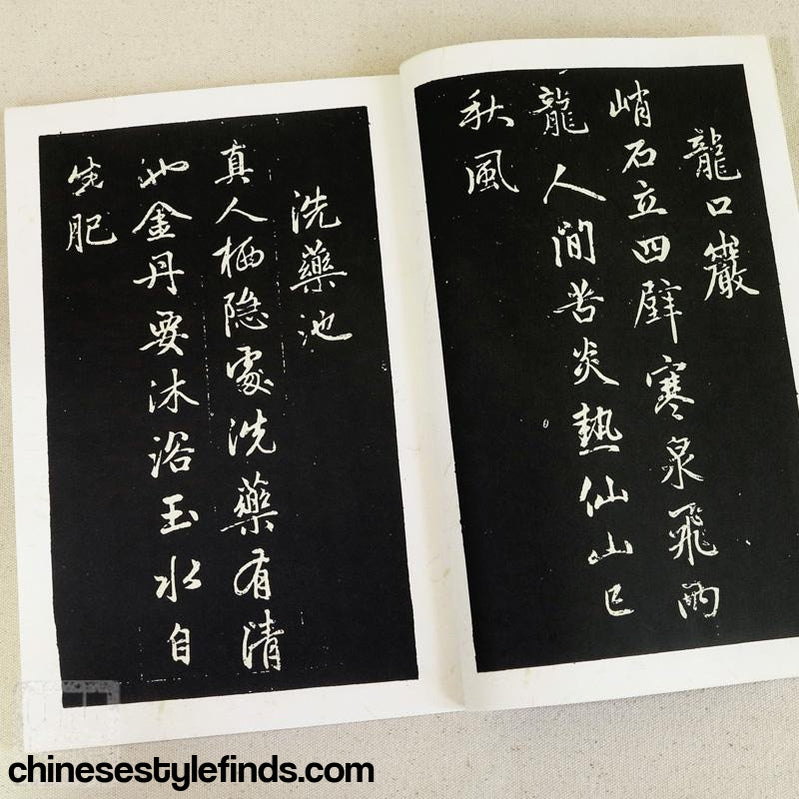 龍口巖
峭石立四壁寒泉飛兩
龍人間苦炎熱仙山已
秋風
洗藥池
真人栖隐處洗藥有清
池金丹要沐浴玉水自
生肥
chinesestylefinds.com